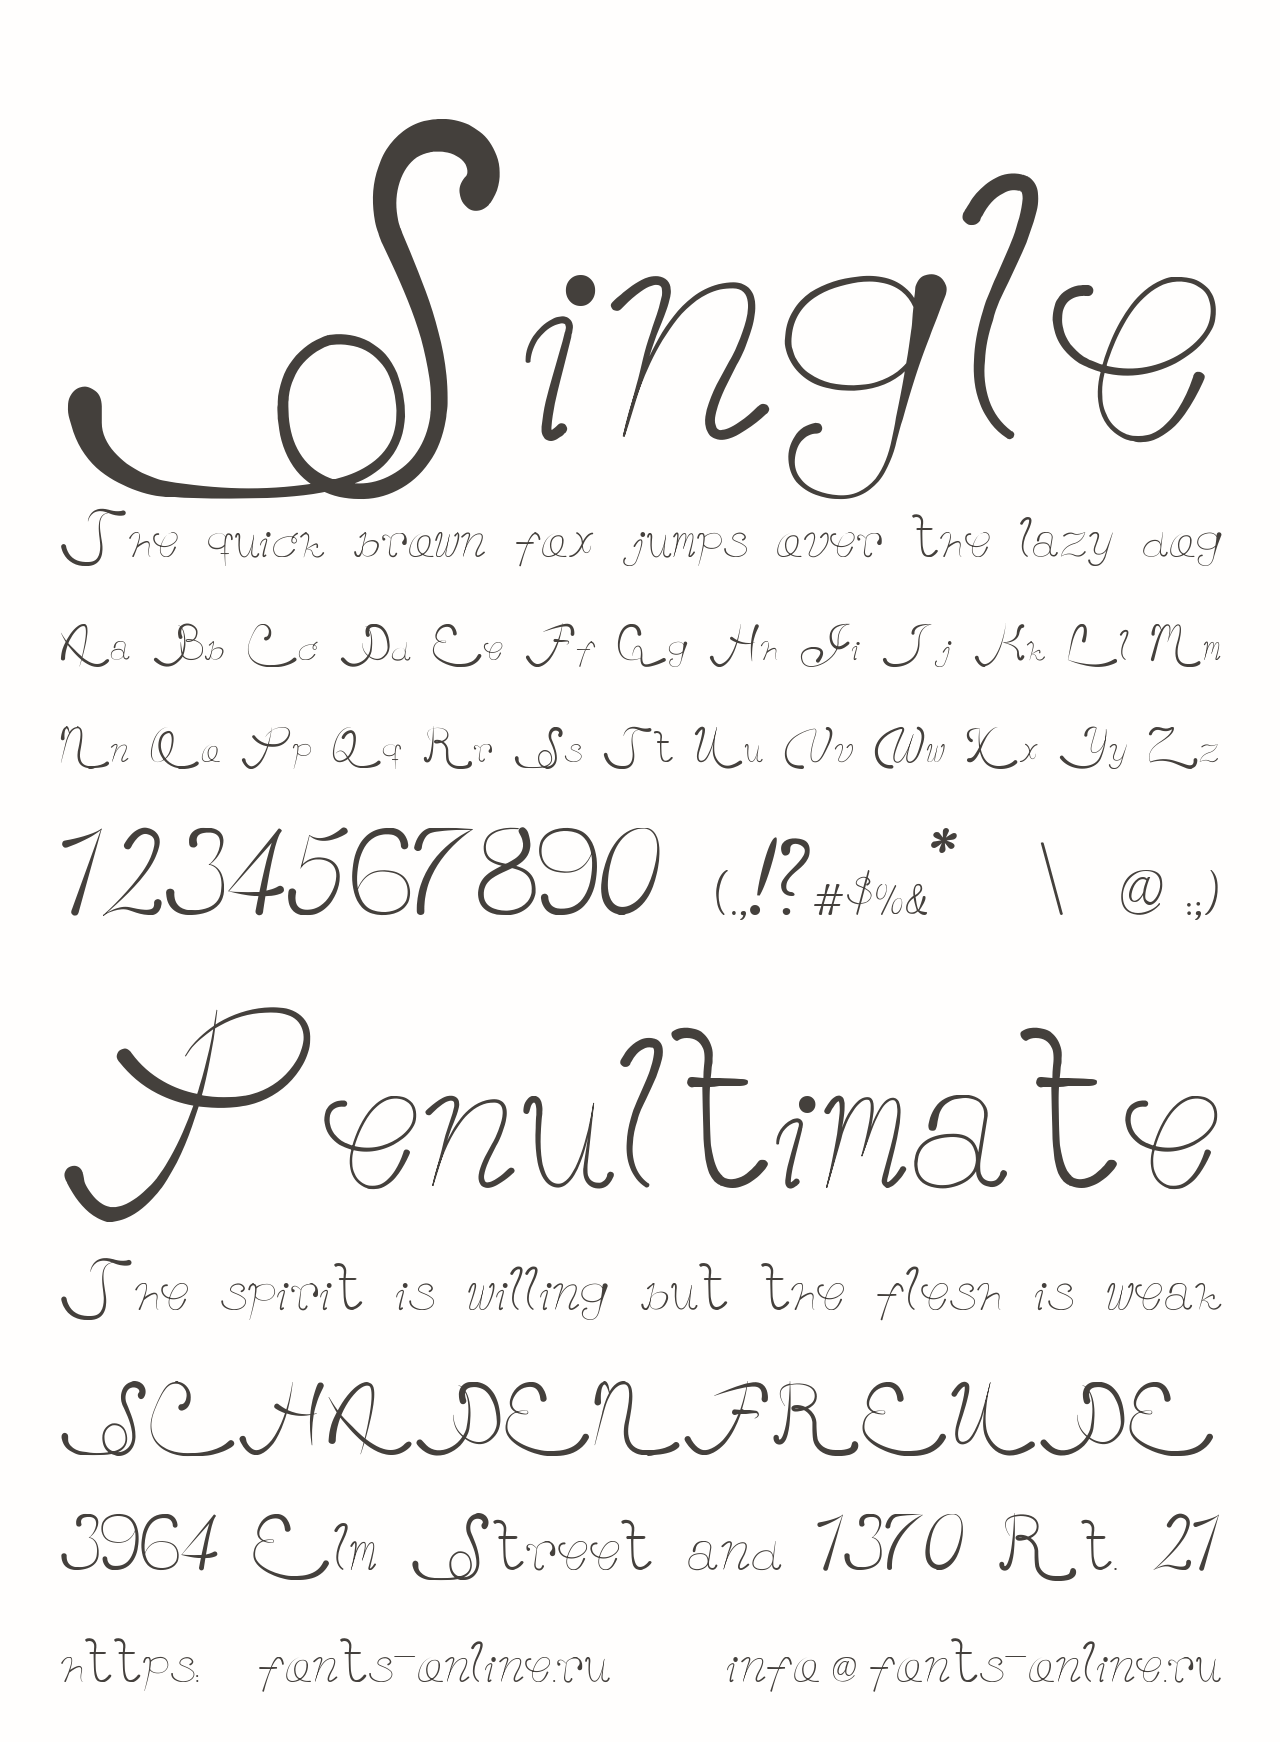 Single
The quick brown fox jumps over the lazy dog
Aa Bb Cc Dd Ee Ff Gg Hh Ii Jj Kk Ll Mm
Nn Oo Pp Qq Rr Ss Tt Uu Vv Ww Xx Yy Zz
1234567890 (.,!?#$%&* \ @ :;)
Penultimate
The spirit is willing but the flesh is weak
SCHADENFREUDE
3964 Elm Street and 1370 Rt. 21
https: fonts-online.ru info@fonts-online.ru